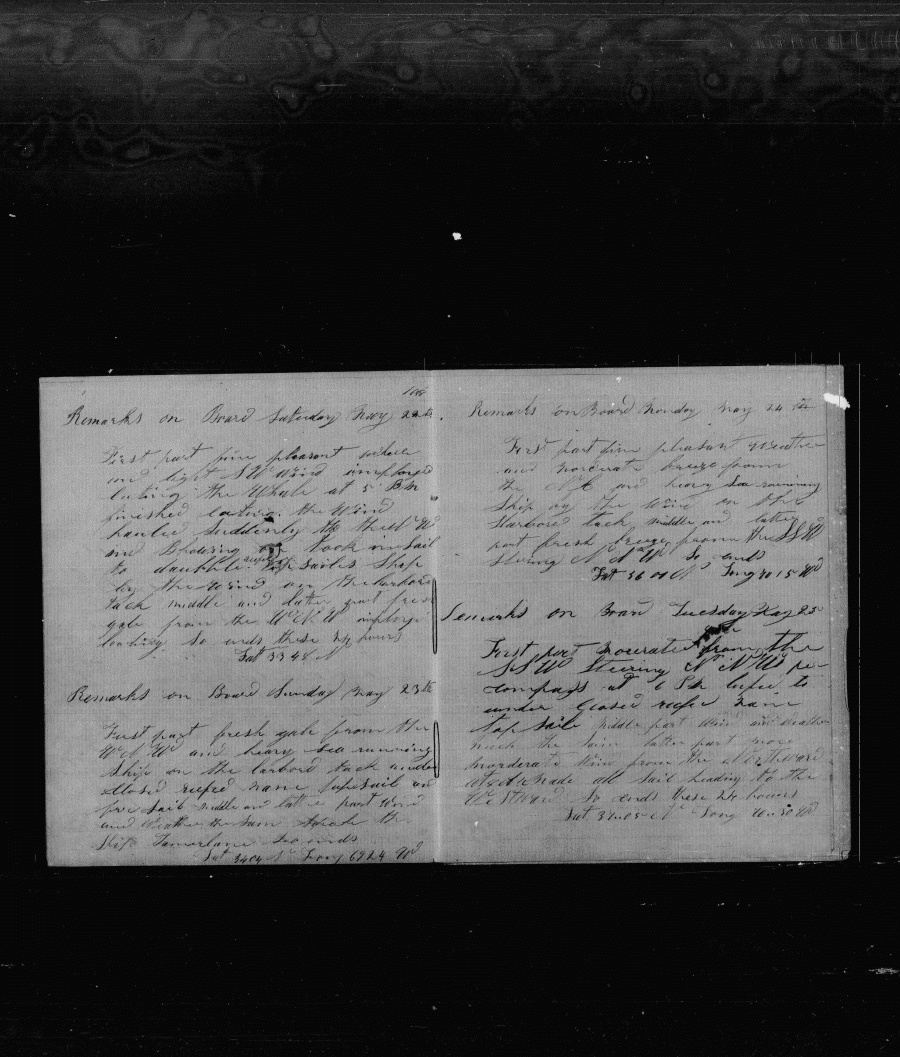 106
Remarks on Board Saturday May 22th
First part fine pleasant
and light S W wind imployed
cuting the Whale at 5 P M
finished cuting. the Wind
hauled Suddenly to the W
and took in Sail
to doubble reefed Top Sailes Ship
by the wind on the larbord
tack middle and later part fresh
gale from the W N W imployd
So ends these 24 hours
Lat 33 48 N
Remarks on Board Sunday May 23th
First part fresh gale from the
W N W and heavy Sea running
Ship on the larbord tack under
Closed reefed main topsail and
fore Sail middle and latter part wind
and Weather the Same Spoak the
Ship Tamerlane So ends
Lat 3404 N Long 6924 W
Remarks on Board Monday May 24 th
First part fine pleasant Weather
and morderate breeze from
the N E and heavy Sea running
Ship by the Wind on the
Starbord tack middle and latter
part fresh breeze from the S S W
Stering N N W So ends
Lat 36 00 N Long 70 15 W
Remarks on Board Tuesday May 25
First part morcerate from the
S S W Steering N N W pr
compass at 6 P M lufed to
under Closed reefe main
top Saile middle part Wind and Weather
much the Same latter part more
morderate Wind from the Northward
made all Sail heading to the
Westward So ends these 24 houers
Lat 37 05 N Long 70 30 W